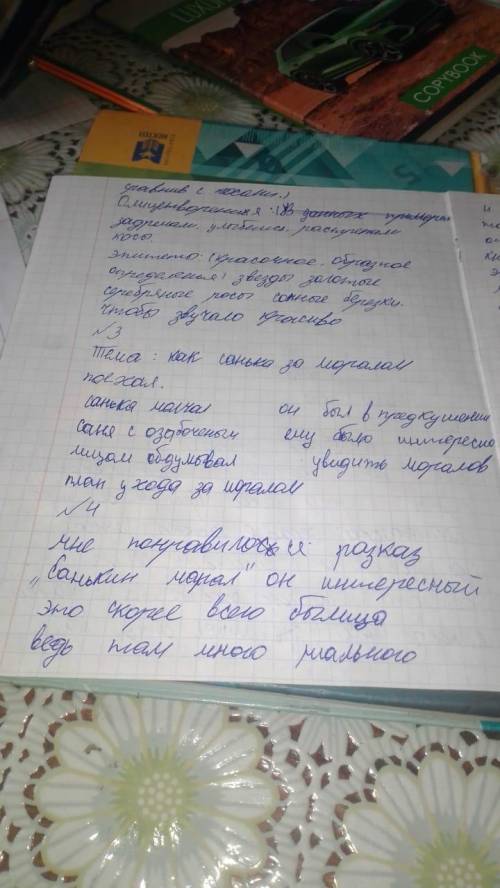 LUXU
COPYBOOK
МЕКТЕП
5
сравнив с косами.)
Олицетворения: (В данных примерах
задремали, улыбнись, растрепали
косы
эпитеты: (красочное, образное
определения) звезды золотые
серебряные росы сонные березки.
чтобы звучало красиво
№3
Тема: как санька за моралом
поехал.
санька молчал он был в предкушении
саня с озабоченым ему было интересно
лицом обдумовал увидить моралов
план ухода за моралом
№4
мне понравилось розказ
"Санькин марал" он интересный
это скорее всего былица
ведь там много реального